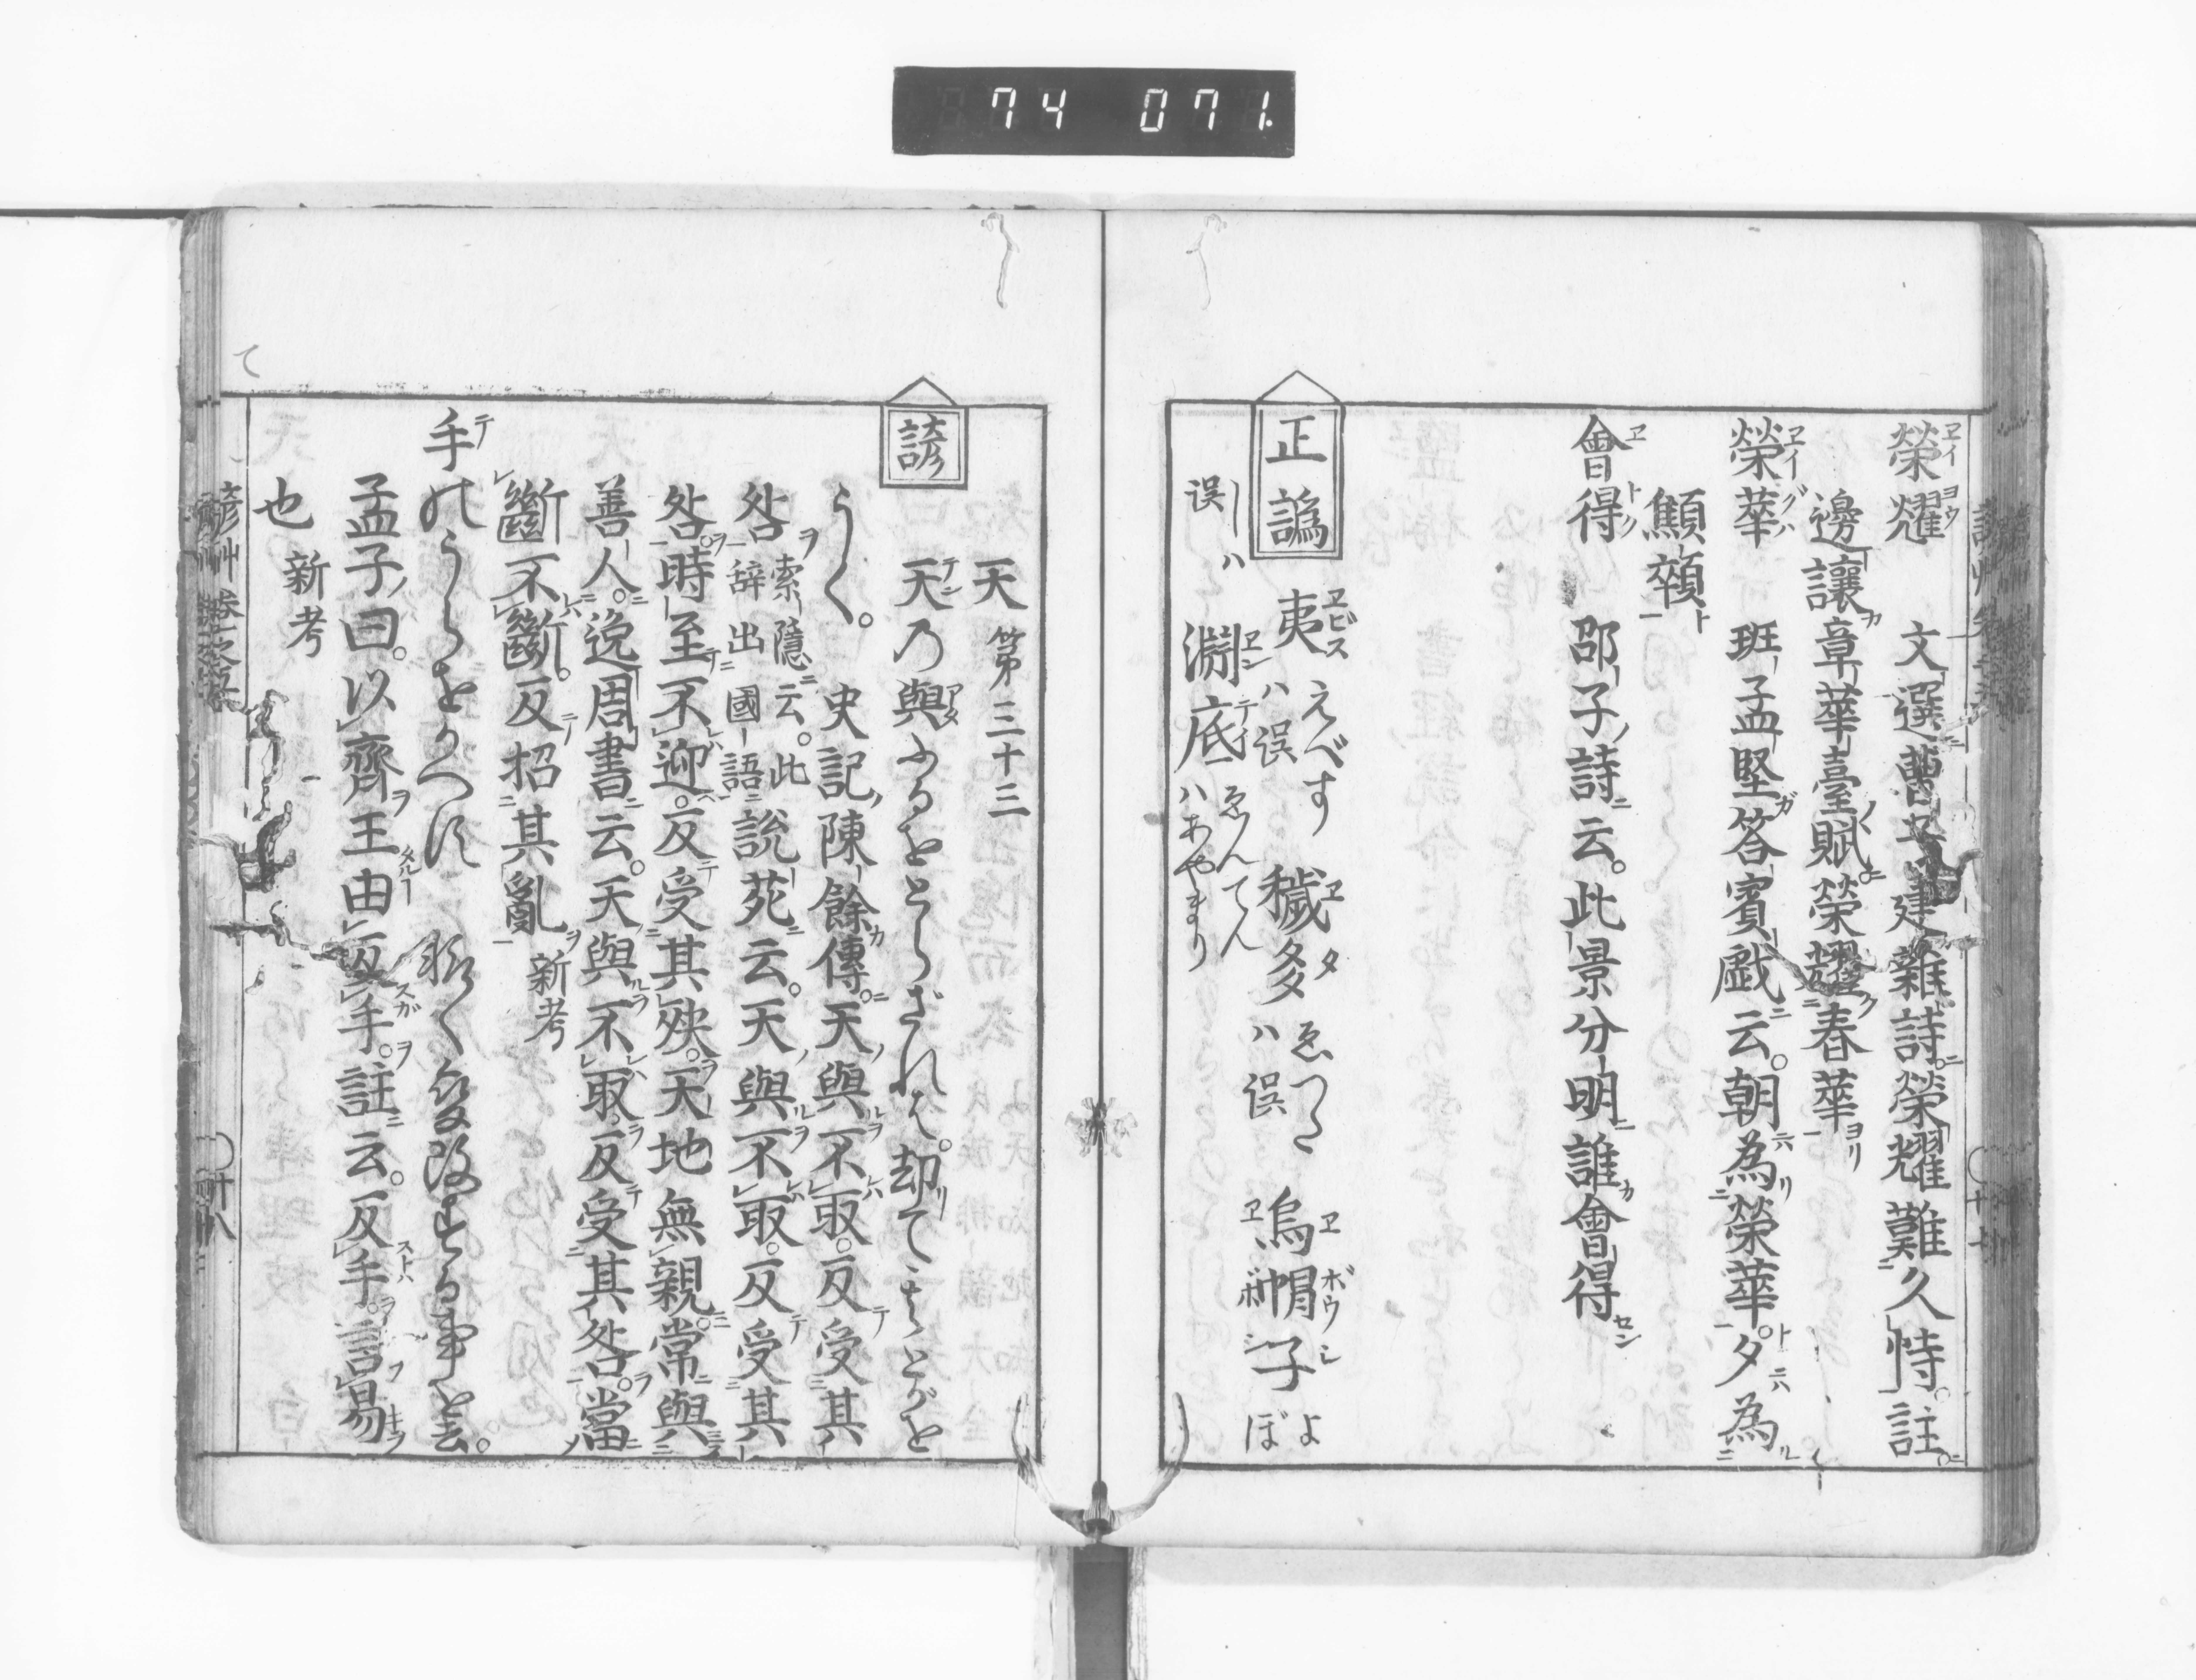 74 071.
榮耀 文選曹子建雜詩榮耀難久恃註
邊讓章華臺賦榮耀春華
榮華 班孟堅答賓戯云朝為榮華夕為
顦顇
會得 邵子詩云此景分明誰會得
正譌 夷えべすハ誤 穢多ゑつたハ誤 烏帽子よぼ
誤 淵底ゑんてんハあやまり
天 第三十三
諺 天乃與ふるをとらざれバ却て其とがを
うく 史記陳餘傳天與不取反受其
咎 索隱云此辞出國語 說苑云天與不取反受其
咎時至不迎反受其殃天地無親常與
善人逸周書云天與不取反受其咎當
斷不斷反招其亂 新考
手のうらをかへす
孟子曰以齊王由反手註云反手言易
也 新考